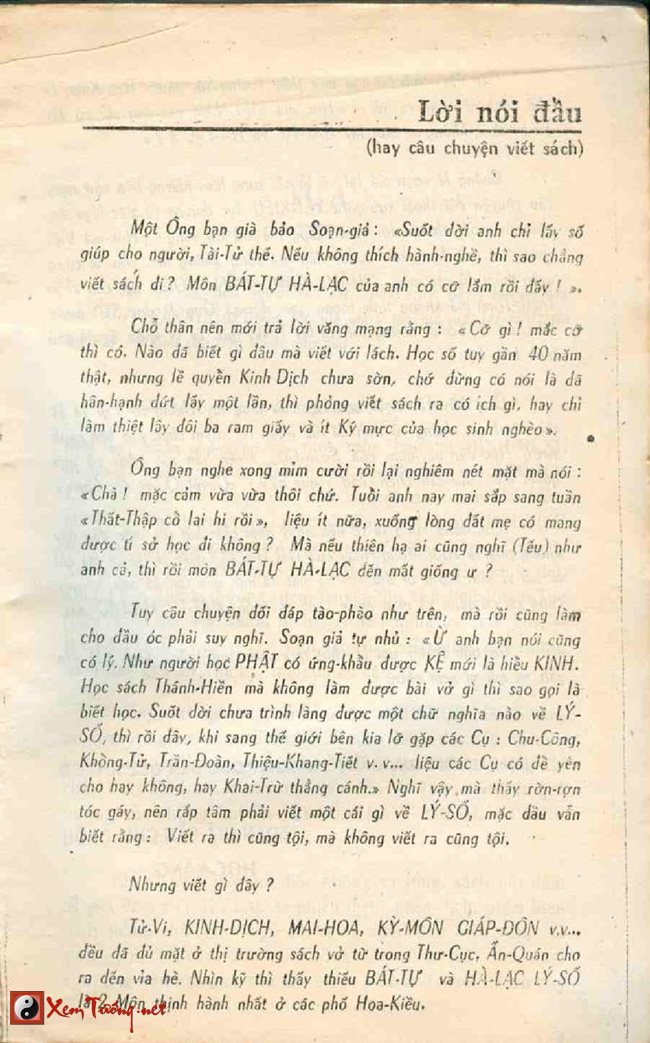 Lời nói đầu
(hay câu chuyện viết sách)
Một Ông bạn già bảo Soạn-giả : «Suốt đời anh chỉ lấy số
giúp cho người, Tài-Tử thế. Nếu không thích hành-nghề, thì sao chẳng
viết sách đi ? Môn BÁT-TỰ HÀ-LẠC của anh có cỡ lắm rồi đấy ! ».
Chỗ thân nên mới trả lời văng mạng rằng : «Cỡ gì ! mắc cỡ
thì có. Nào đã biết gì đâu mà viết với lách. Học số tuy gần 40 năm
thật, nhưng lề quyền Kinh Dịch chưa sờn, chớ đừng có nói là đã
hân-hạnh đứt lấy một lần, thì phỏng viết sách ra có ích gì, hay chỉ
làm thiệt lây đôi ba ram giấy và ít Ký mực của học sinh nghèo».
Ông bạn nghe xong mỉm cười rồi lại nghiêm nét mặt mà nói :
«Chà ! mặc cảm vừa vừa thôi chứ. Tuổi anh nay mai sắp sang tuần
«Thất-Thập cồ lai hi rồi», liệu ít nữa, xuống lòng đất mẹ có mang
được tí sở học đi không ? Mà nếu thiên hạ ai cũng nghĩ (Tếu) như
anh cả, thì rồi môn BÁT-TỰ HÀ-LẠC đến mất giống ư ?
Tuy câu chuyện đối đáp tào-phào như trên, mà rồi cũng làm
cho đầu óc phải suy nghĩ. Soạn giả tự nhủ : «Ừ anh bạn nói cũng
có lý. Như người học PHẬT có ứng-khẩu được KỆ mới là hiểu KINH.
Học sách Thánh-Hiền mà không làm được bài vở gì thì sao gọi là
biết học. Suốt đời chưa trình làng được một chữ nghĩa nào về LÝ-
SỐ, thì rồi đây, khi sang thế giới bên kia lỡ gặp các Cụ : Chu-Công,
Khổng-Tử, Trần-Đoàn, Thiệu-Khang-Tiết v. v... liệu các Cụ có để yên
cho hay không, hay Khai-Trừ thẳng cánh.» Nghĩ vậy mà thấy rờn-rợn
tóc gáy, nên rắp tâm phải viết một cái gì về LÝ-SỐ, mặc dầu vẫn
biết rằng : Viết ra thì cũng tội, mà không viết ra cũng tội.
Nhưng viết gì đây ?
Tử-Vi, KINH-DỊCH, MAI-HOA, KỲ-MÔN GIÁP-ĐỘN v.v...
đều đã đủ mặt ở thị trường sách vở từ trong Thư-Cục, Ấn-Quán cho
ra đến vỉa hè. Nhìn kỹ thì thấy thiếu BÁT-TỰ và HÀ-LẠC LÝ-SỐ
là 2 Môn thịnh hành nhất ở các phố Hoa-Kiều.
XemTướng.net